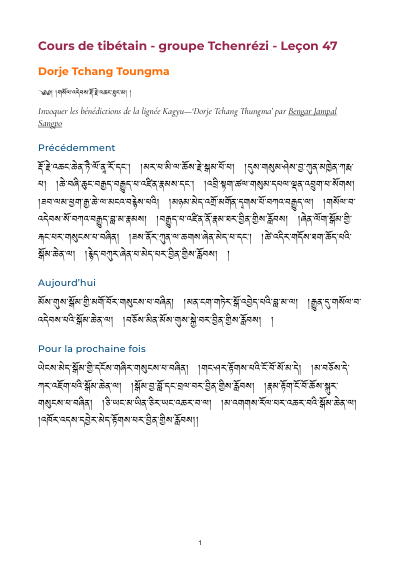 Cours de tibétain - groupe Tchenrézi - Leçon 47
Dorje Tchang Toungma
༄༅། །གསོལ་འདེབས་རྡོ་རྗེ་འཆང་ཐུང་མ། །
Invoquer les bénédictions de la lignée Kagyu—‘Dorje Tchang Thungma’ par Bengar Jampal
Sangpo
Précédemment
རྡོ་རྗེ་འཆང་ཆེན་ཏཻ་ལོ་ནཱ་རོ་དང་། །མར་པ་མི་ལ་ཆོས་རྗེ་སྒམ་པོ་པ། །དུས་གསུམ་ཤེས་བྱ་ཀུན་མཁྱེན་ཀརྨ་
པ། །ཆེ་བཞི་ཆུང་བརྒྱད་བརྒྱུད་པ་འཛིན་རྣམས་དང་། །འབྲི་སྟག་ཚལ་གསུམ་དཔལ་ལྡན་འབྲུག་པ་སོགས།
།ཟབ་ལམ་ཕྱག་རྒྱ་ཆེ་ལ་མངའ་བརྙེས་པའི། །མཉམ་མེད་འགྲོ་མགོན་དྭགས་པོ་བཀའ་བརྒྱུད་ལ། །གསོལ་བ་
འདེབས་སོ་བཀའ་བརྒྱུད་བླ་མ་རྣམས། །བརྒྱུད་པ་འཛིན་ནོ་རྣམ་ཐར་བྱིན་གྱིས་རློབས། །ཞེན་ལོག་སྒོམ་གྱི་
རྐང་པར་གསུངས་པ་བཞིན། །ཟས་ནོར་ཀུན་ལ་ཆགས་ཞེན་མེད་པ་དང་། །ཚེ་འདིར་གདོས་ཐག་ཆོད་པའི་
སྒོམ་ཆེན་ལ། །རྙེད་བཀུར་ཞེན་པ་མེད་པར་བྱིན་གྱིས་རློབས། །
Aujourd’hui
མོས་གུས་སྒོམ་གྱི་མགོ་བོར་གསུངས་པ་བཞིན། །མན་ངག་གཏེར་སྒོ་འབྱེད་པའི་བླ་མ་ལ། །རྒྱུན་དུ་གསོལ་བ་
འདེབས་པའི་སྒོམ་ཆེན་ལ། །བཅོས་མིན་མོས་གུས་སྐྱེ་བར་བྱིན་གྱིས་རློབས། །
Pour la prochaine fois
ཡེངས་མེད་སྒོམ་གྱི་དངོས་གཞིར་གསུངས་པ་བཞིན། །གང་ཤར་རྟོགས་པའི་ངོ་བོ་སོ་མ་དེ། །མ་བཅོས་དེ་
ཀར་འཇོག་པའི་སྒོམ་ཆེན་ལ། །སྒོམ་བྱ་བློ་དང་བྲལ་བར་བྱིན་གྱིས་རློབས། །རྣམ་རྟོག་ངོ་བོ་ཆོས་སྐུར་
གསུངས་པ་བཞིན། །ཅི་ཡང་མ་ཡིན་ཅིར་ཡང་འཆར་བ་ལ། །མ་འགགས་རོལ་པར་འཆར་བའི་སྒོམ་ཆེན་ལ།
།འཁོར་འདས་དབྱེར་མེད་རྟོགས་པར་བྱིན་གྱིས་རློབས།།
1